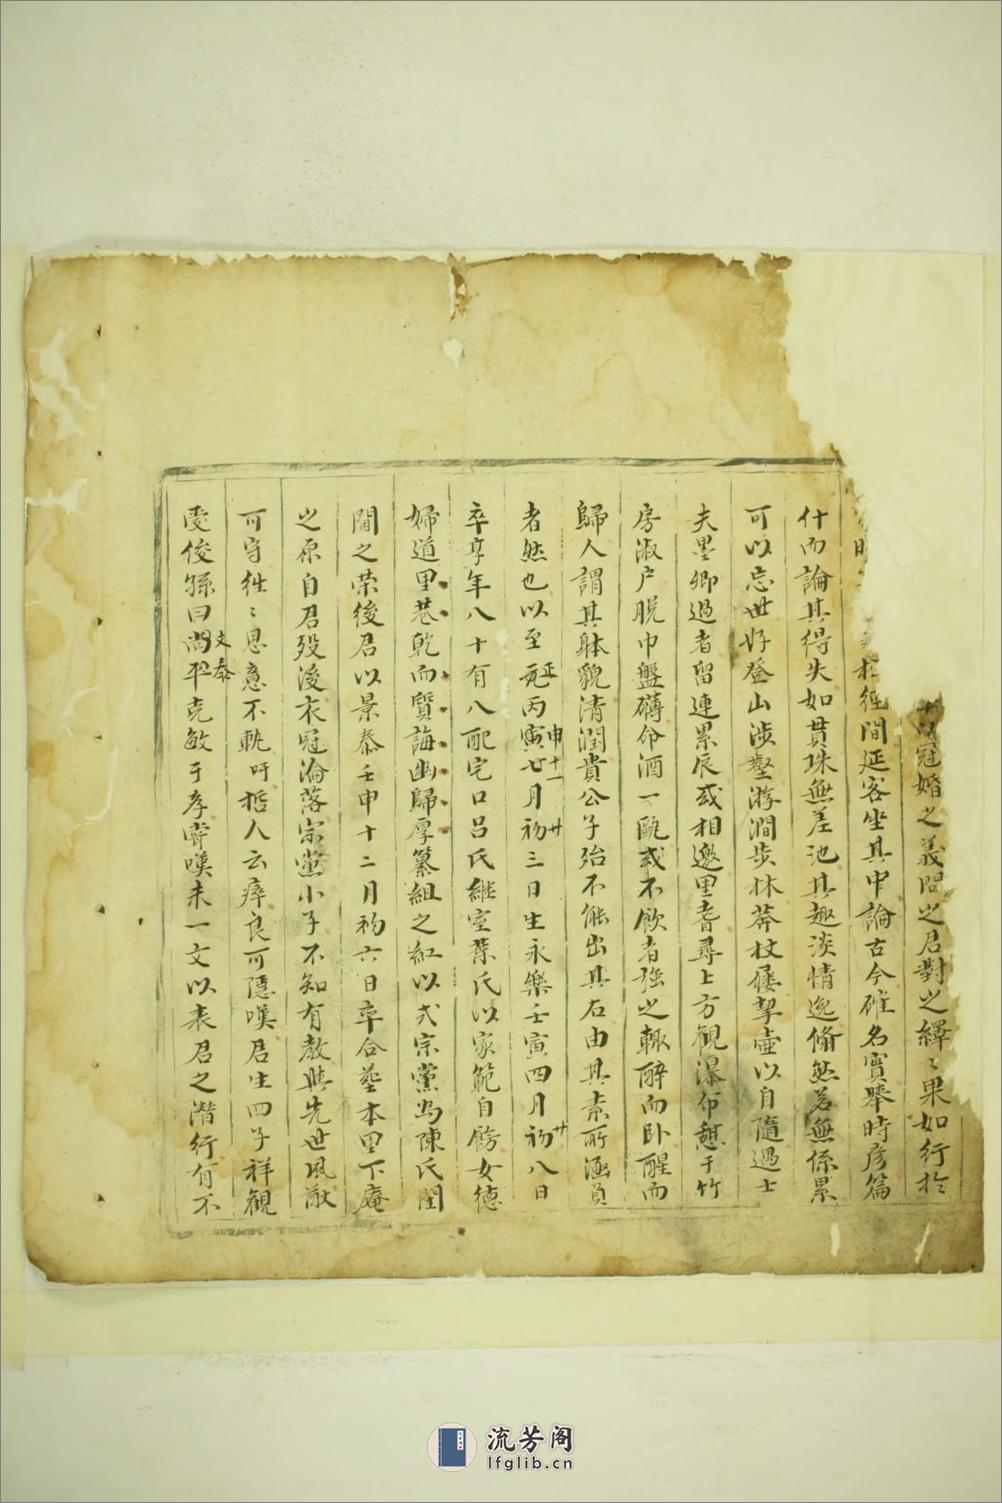 以冠婚之義問之君對之繹〻果如行於
時 於經間延客坐其中論古今碓名實舉時彥篇
什而論其得失如貫珠無差池其趣淡情逸翛然若無係累
可以忘世好登山涉壑游澗步林莽杖屨挈壺以自隨過士
夫墨卿過者留連累辰或相邀里耆尋上方觀瀑布憩于竹
房淑户脱巾盤礴命酒一甌或不飲者強之輙醉而卧醒而
歸人謂其躰貌清潤貴公子殆不能出其右由其素所涵負
者然也以至元丙寅七月初三日生永樂壬寅四月初八日
正 申十一 廿 廿
卒享年八十有八配宅口吕氏継室葉氏以家範自餝女德
婦道里巷乾而質誨幽歸厚纂組之紅以式宗黨為陳氏閨
閫之荣後君以景泰壬申十二月初六日卒合塟本里下庵
之原自君殁後衣冠淪落宗黨小子不知有教典先世風猷
可守徃〻恩意不軌吁哲人云瘁良可隱嘆君生四子祥観
雯俊孫曰尚平克敏于孝甞嘆未一文以表君之潛行有不
文泰
流芳阁
lfglib.cn